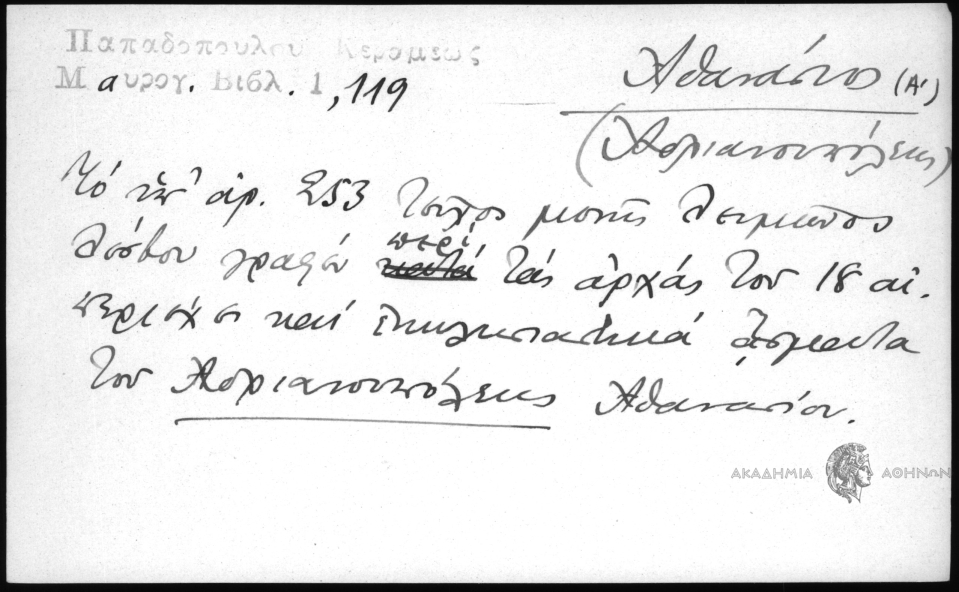 Παπαδοπούλου Κεραμέως
Μαυρογ. Βιβλ. 1, 119
Ἀθανάσιος (Α')
(Ἀδριανουπόλεως)
Τό ὑπ' ἀρ. 253 μονῆς Λειμῶνος
Λέσβου γραφέν περί τάς ἀρχάς του 18 αἰ.
περιέχει καί ἐκκλησιαστικά ᾄσματα
του Ἀδριανουπόλεως Ἀθανασίου.
ΑΚΑΔΗΜΙΑ ΑΘΗΝΩΝ